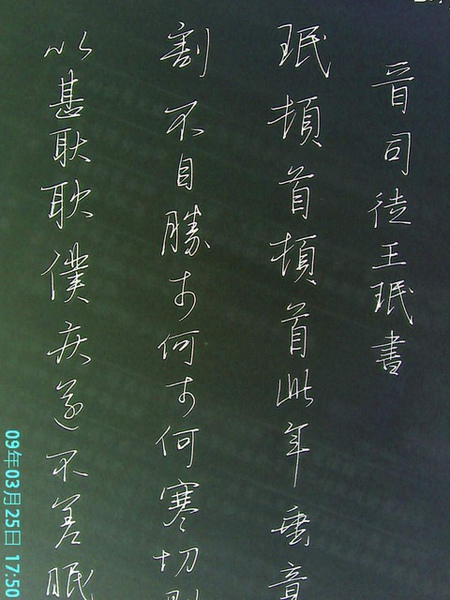 晋司徒王珉書
珉頓首頓首此年垂
割不自勝奈何奈何寒切
以甚耿耿僕疾遂不差眠
09年03月25日 17:50